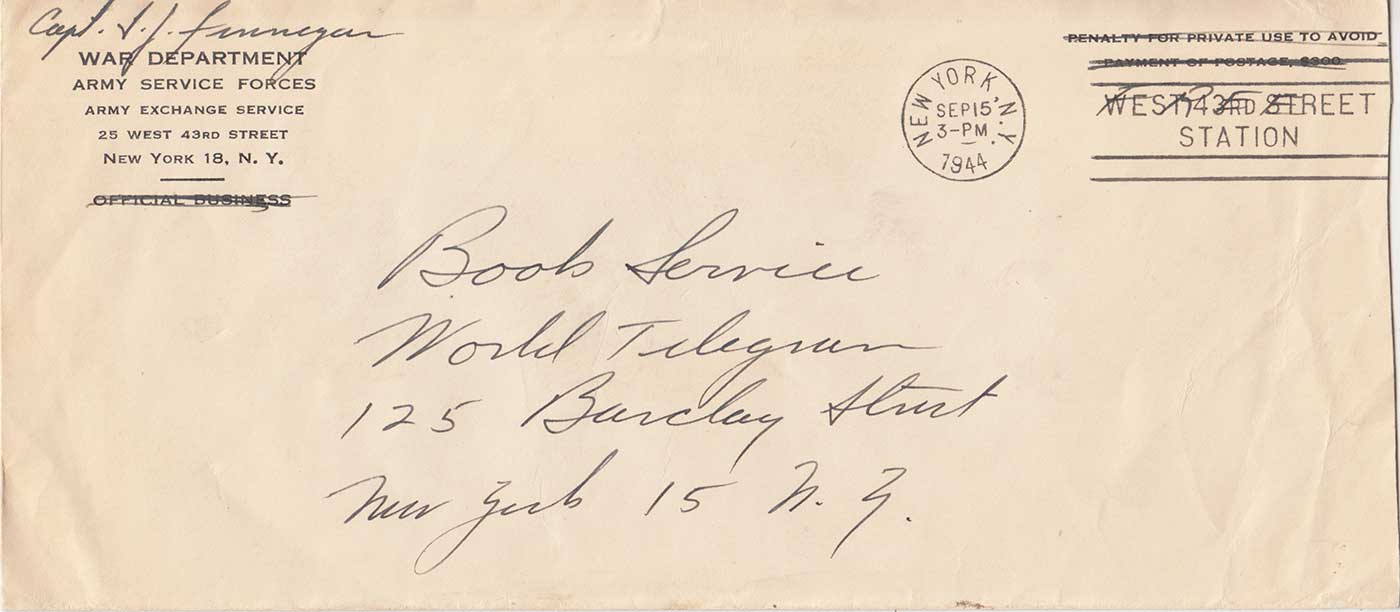 Capt. T. J. Finnegan
WAR DEPARTMENT
ARMY SERVICE FORCES
ARMY EXCHANGE SERVICE
25 WEST 43RD STREET
NEW YORK 18, N. Y.
OFFICIAL BUSINESS
NEW YORK, N.Y.
SEP 15
3-PM
1944
PENALTY FOR PRIVATE USE TO AVOID
PAYMENT OF POSTAGE, $300
WEST 43RD STREET
STATION
FREE
Book Service
World Telegram
125 Barclay Street
New York 15 N. Y.